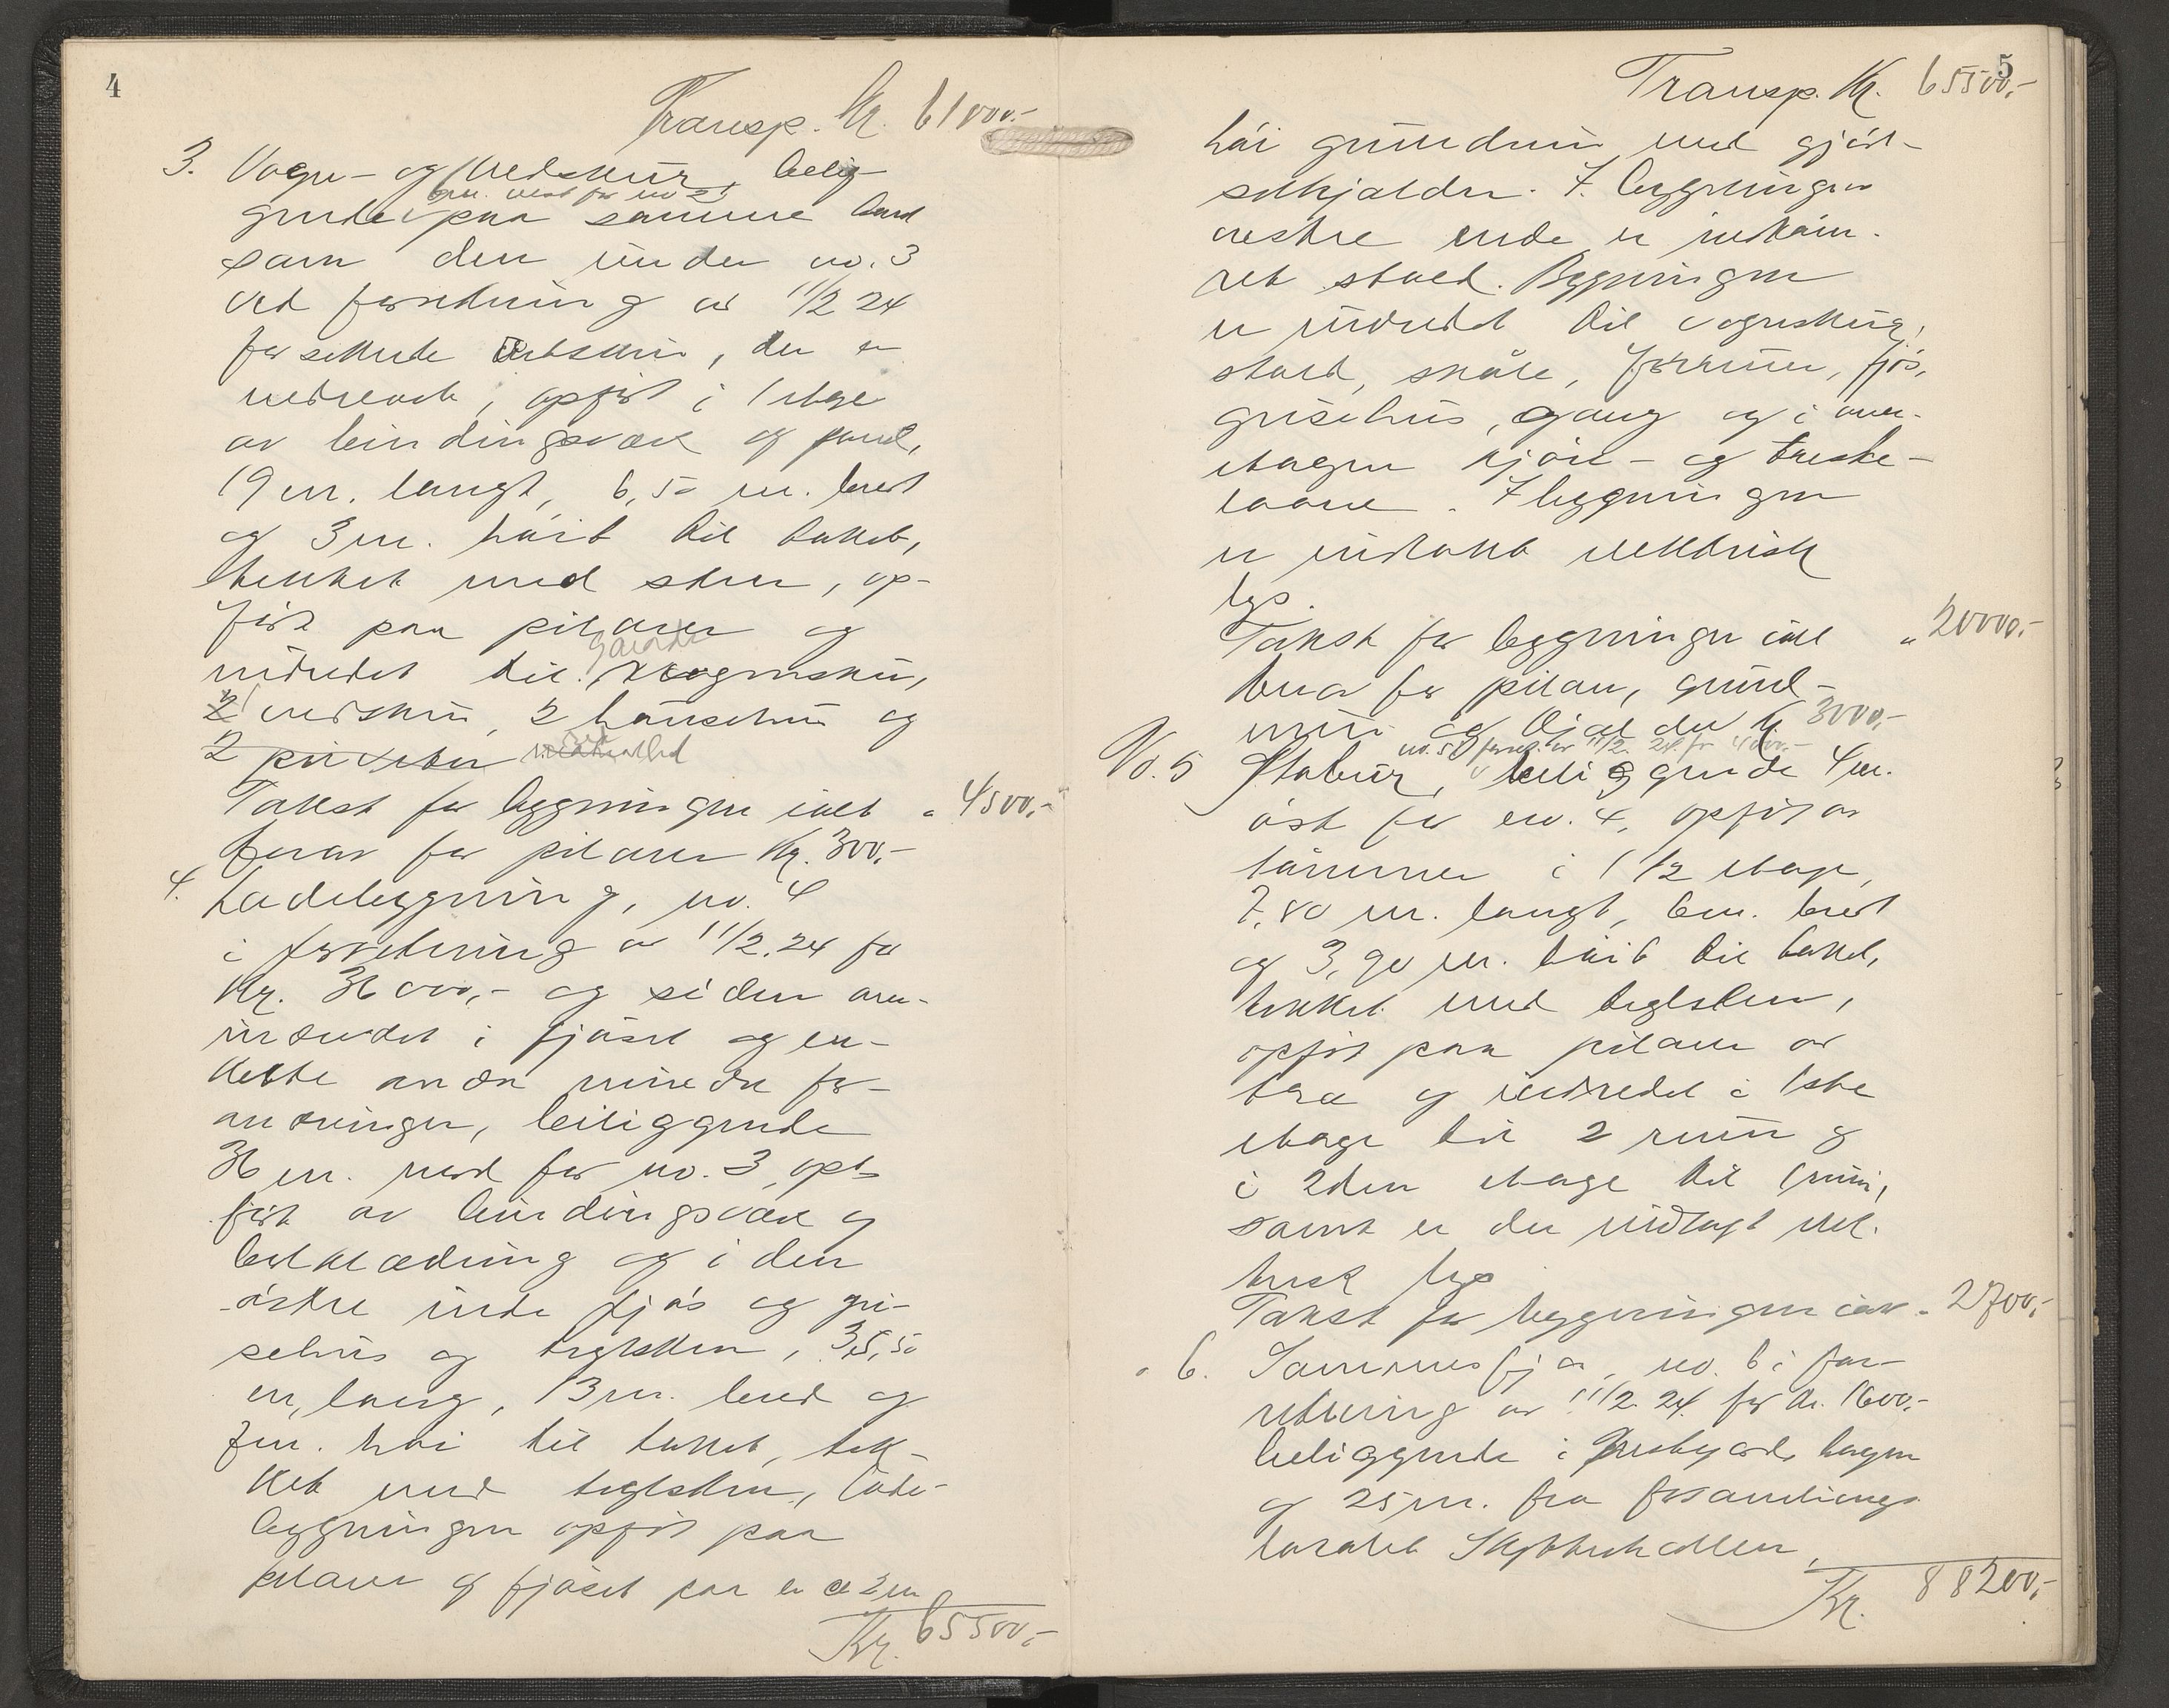 4
Transp. Kr. 61000.-
3. Vogn- og Vedskur, belig-
gende paa samme sted
som den under no. 3
ved forretning av 11/2 24
forsikrede vedskur, der er
nedrevet, opført i 1 etage
av bindingsverk og panel,
19 m. langt, 6,50 m. bredt
og 3 m. høit til taket,
tekket med sten, op-
ført paa pilarer og
indredet til vognskur,
vedskur, 2 hønsehus og
Takst for bygningen ialt " 4500.-
herav for pilarer Kr. 300.-
4. Ladebygning, no. 4
i forretning av 11/2.24 for
Kr. 36000,- og siden om-
indredet i fjøset og en-
kelte andre mindre for-
andringer, beliggende
36 m. nord for no. 3, op-
ført av bindingsverk og
bordklædning og i den
østre ende fjøs og gri-
sehus og teglsten, 35,50
m. lang, 13 m. bred og
7 m. høi til taket, tek-
ket med teglsten, lade-
bygningen opført paa
pilarer og fjøset paa en ca 2 m
Kr. 65500,-
5
Transp. Kr. 65500,-
høi grundmur med gjød-
selkjelder. I bygningens
vestre ende er indrettet stald. Bygningen
er indredet til vognskur,
stald, skåle, forrum, fjøs,
grisehus, gang og i over-
etagen kjøre- og treske-
laave. I bygningen
er indlakt elektrisk
lys.
Takst for bygningen ialt " 20000.-
herav for pilarer, grund-
mur og kjelder Kr 3000,-
no. 5 i forret. av 11/2. 24 for 4000.-
No. 5 Stabur, beliggende 4 m.
øst for no. 4, opført av
tømmer i 1 1/2 etage,
7,80 m. langt, 6 m. bredt
og 3,90 m. høit til taket,
tekket med teglsten,
opført paa pilarer av
træ og indredet i 1ste
etage til 2 rum og
i 2den etage til 1 rum,
samt er der indlagt elek-
trisk lys
Takst for bygningen ialt " 2700,-
" 6. Sommerfjøs, no. 6 i for-
retning av 11/2 24. for kr. 1600,-
beliggende i Prestegaards hagen
og 25 m. fra forsamlings
lokalet
Kr. 88200,-